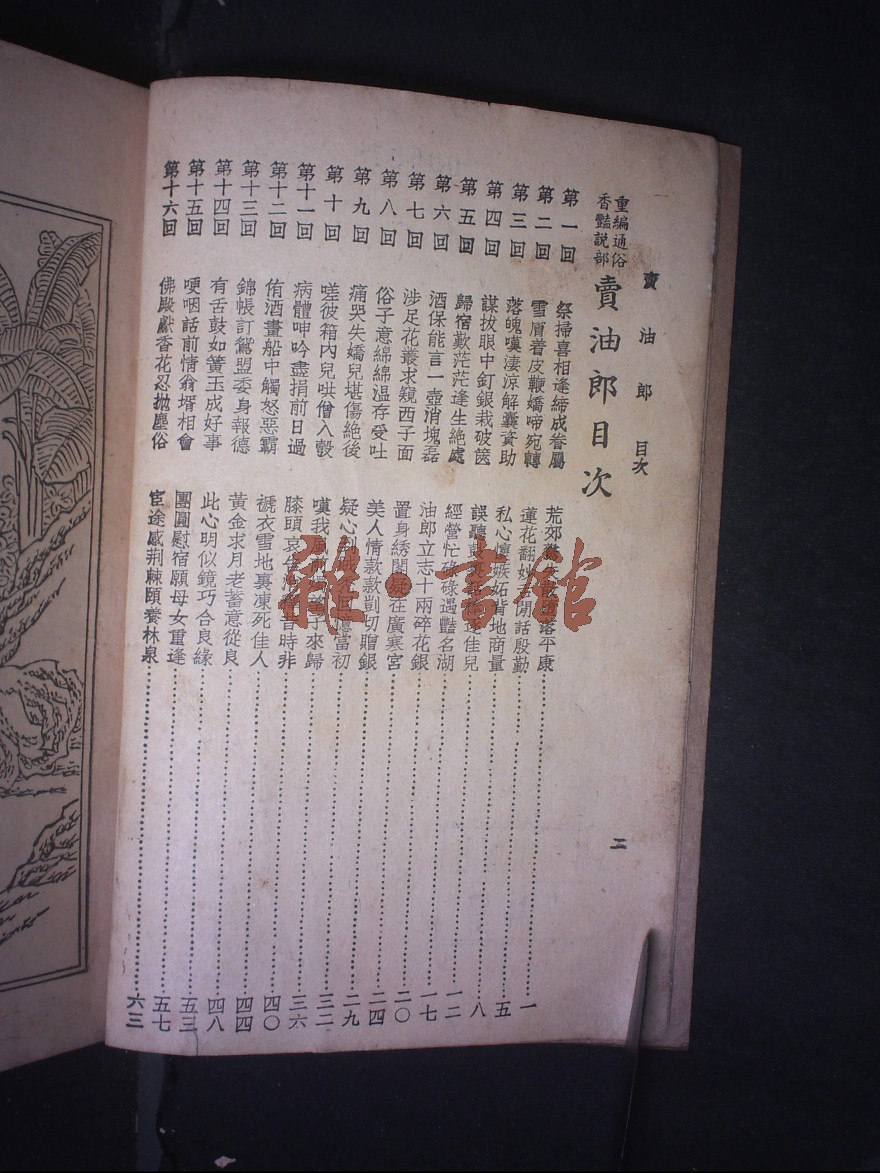 賣油郎 目次
二
重編通俗香豔說部 賣油郎目次
第一回 祭掃喜相逢締成眷屬 荒郊 落平康 一
第二回 雪膚着皮鞭嬌啼宛轉 蓮花翻妙 閒話殷勤 五
第三回 落魄嘆淒涼解囊資助 私心懷嫉妬背地商量 八
第四回 謀拔眼中釘銀栽破篋 誤聽 逐佳兒 一二
第五回 歸宿歎茫茫逢生絶處 經營忙碌碌遇豔名湖 一七
第六回 酒保能言一壺消塊磊 油郎立志十兩碎花銀 二〇
第七回 涉足花叢求窺西子面 置身綉閣疑在廣寒宮 二四
第八回 俗子意綿綿溫存受吐 美人情款款剴切贈銀 二九
第九回 痛哭失嬌兒堪傷絶後 疑心 憶當初 三二
第十回 嗟彼箱內兒哄僧入彀 嘆我風 子來歸 三六
第十一回 病體呻吟盡捐前日過 膝頭哀 昔時非 四〇
第十二回 侑酒畫船中觸怒惡霸 褫衣雪地裏凍死佳人 四四
第十三回 錦帳訂鴛盟委身報德 黃金求月老蓄意從良 四八
第十四回 有舌鼓如簧玉成好事 此心明似鏡巧合良緣 五三
第十五回 哽咽話前情翁壻相會 團圓慰宿願母女重逢 五七
第十六回 佛殿獻香花忍抛塵俗 宦途感荆棘頤養林泉 六三
雜·書館